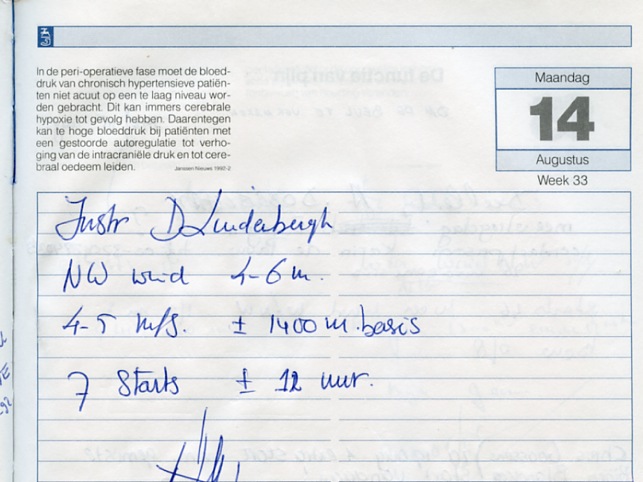 In de peri-operatieve fase moet de bloed-
druk van chronisch hypertensieve patiën-
ten niet acuut op een te laag niveau wor-
den gebracht. Dit kan immers cerebrale
hypoxie tot gevolg hebben. Daarentegen
kan te hoge bloeddruk bij patiënten met
een gestoorde autoregulatie tot verho-
ging van de intracraniële druk en tot cere-
braal oedeem leiden.
Janssen Nieuws 1992-2
Maandag
14
Augustus
Week 33
Instr D Linderbergh
NW wind 4-6 m.
4-5 m/s. ± 1400 m. basis
7 Starts ± 12 uur.